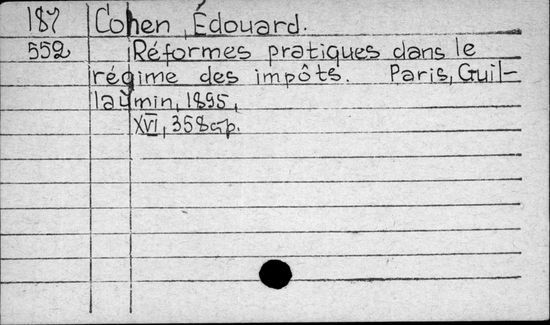 187 Cohen, Édouard.
552 Réformes pratiques dans le
régime des impôts. Paris, Guil-
laumin, 1895,
XVI, 358 p.